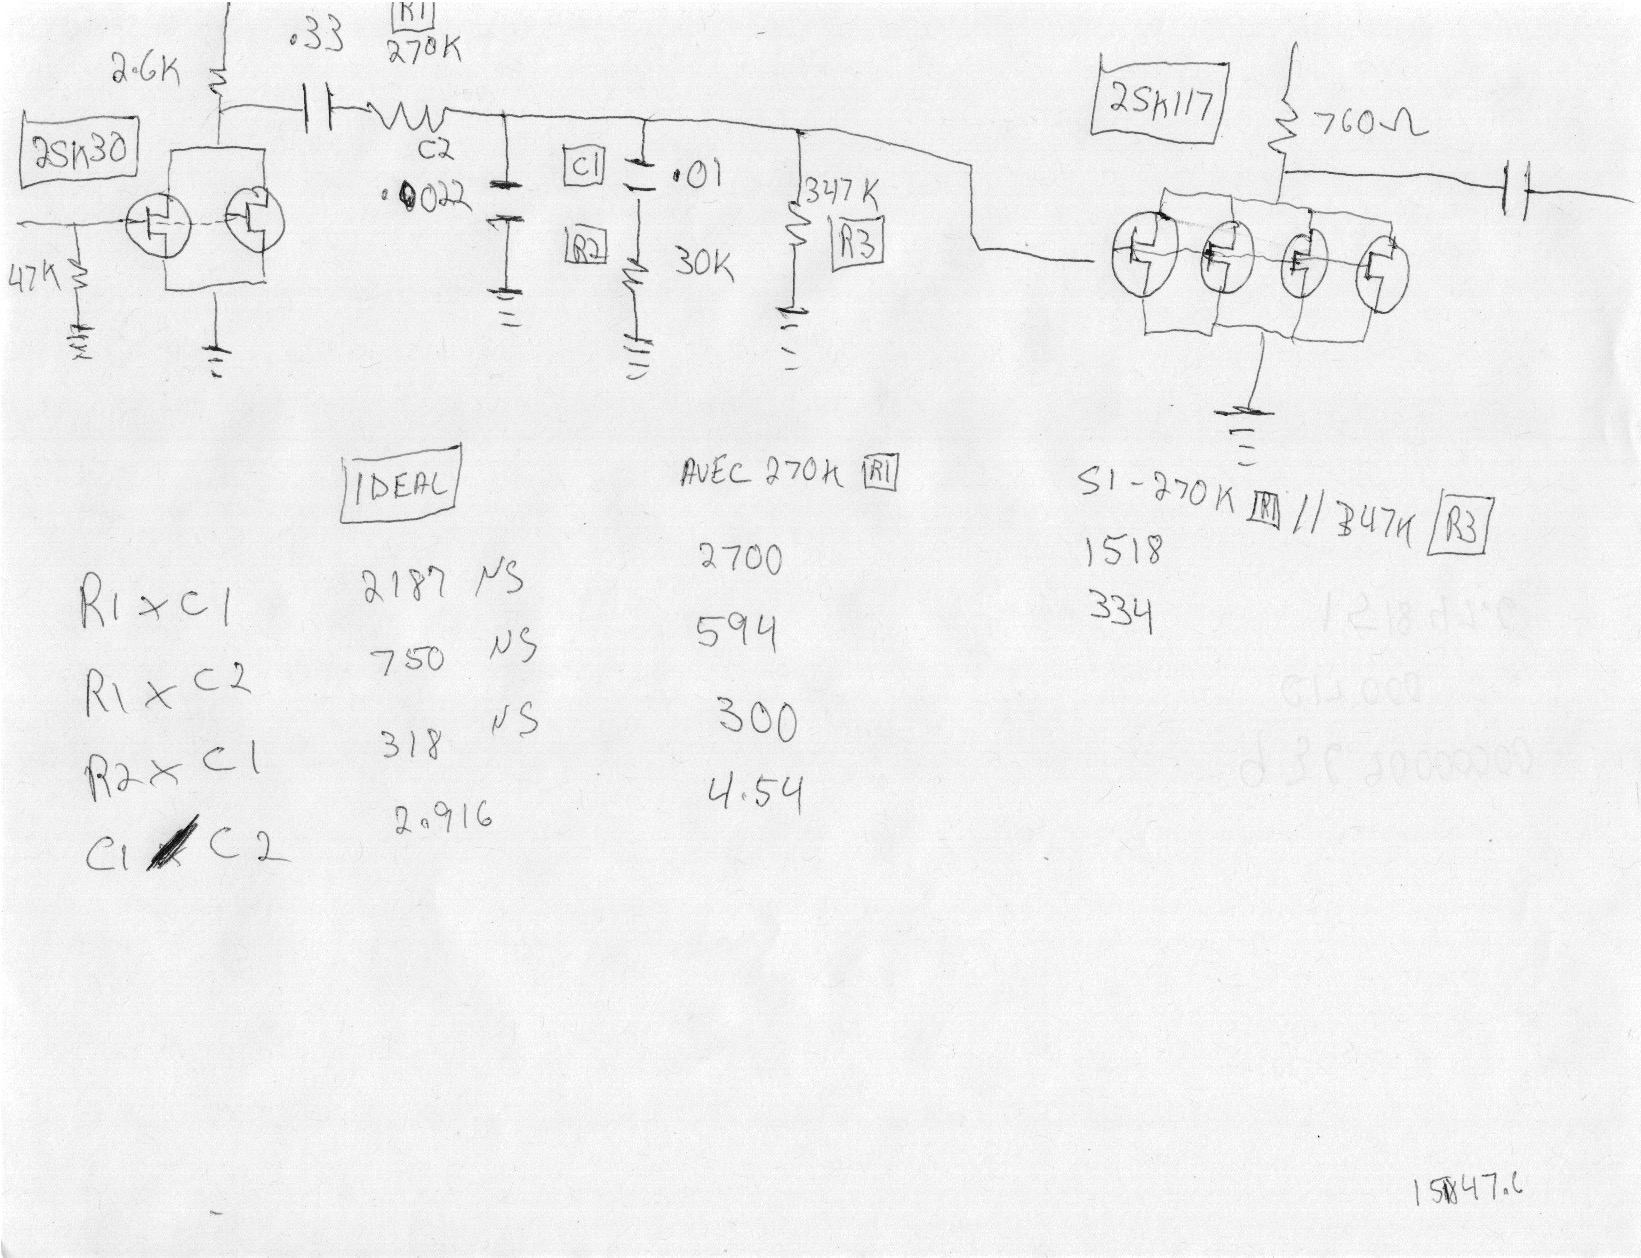 .33
R1
270K
2.6K
2SK30
C2
.0022
47K
C1
.01
R2
30K
347K
R3
2SK117
760Ω
IDEAL
AVEC 270K R1
SI-270K R1 // 347K R3
R1 x C1 2187 NS 2700 1518
R1 x C2 750 NS 594 334
R2 x C1 318 NS 300
C1 C2 2.916 4.54